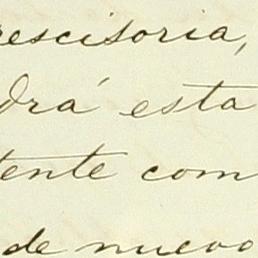 rescisoria,
drá esta
tente com
de nuevo